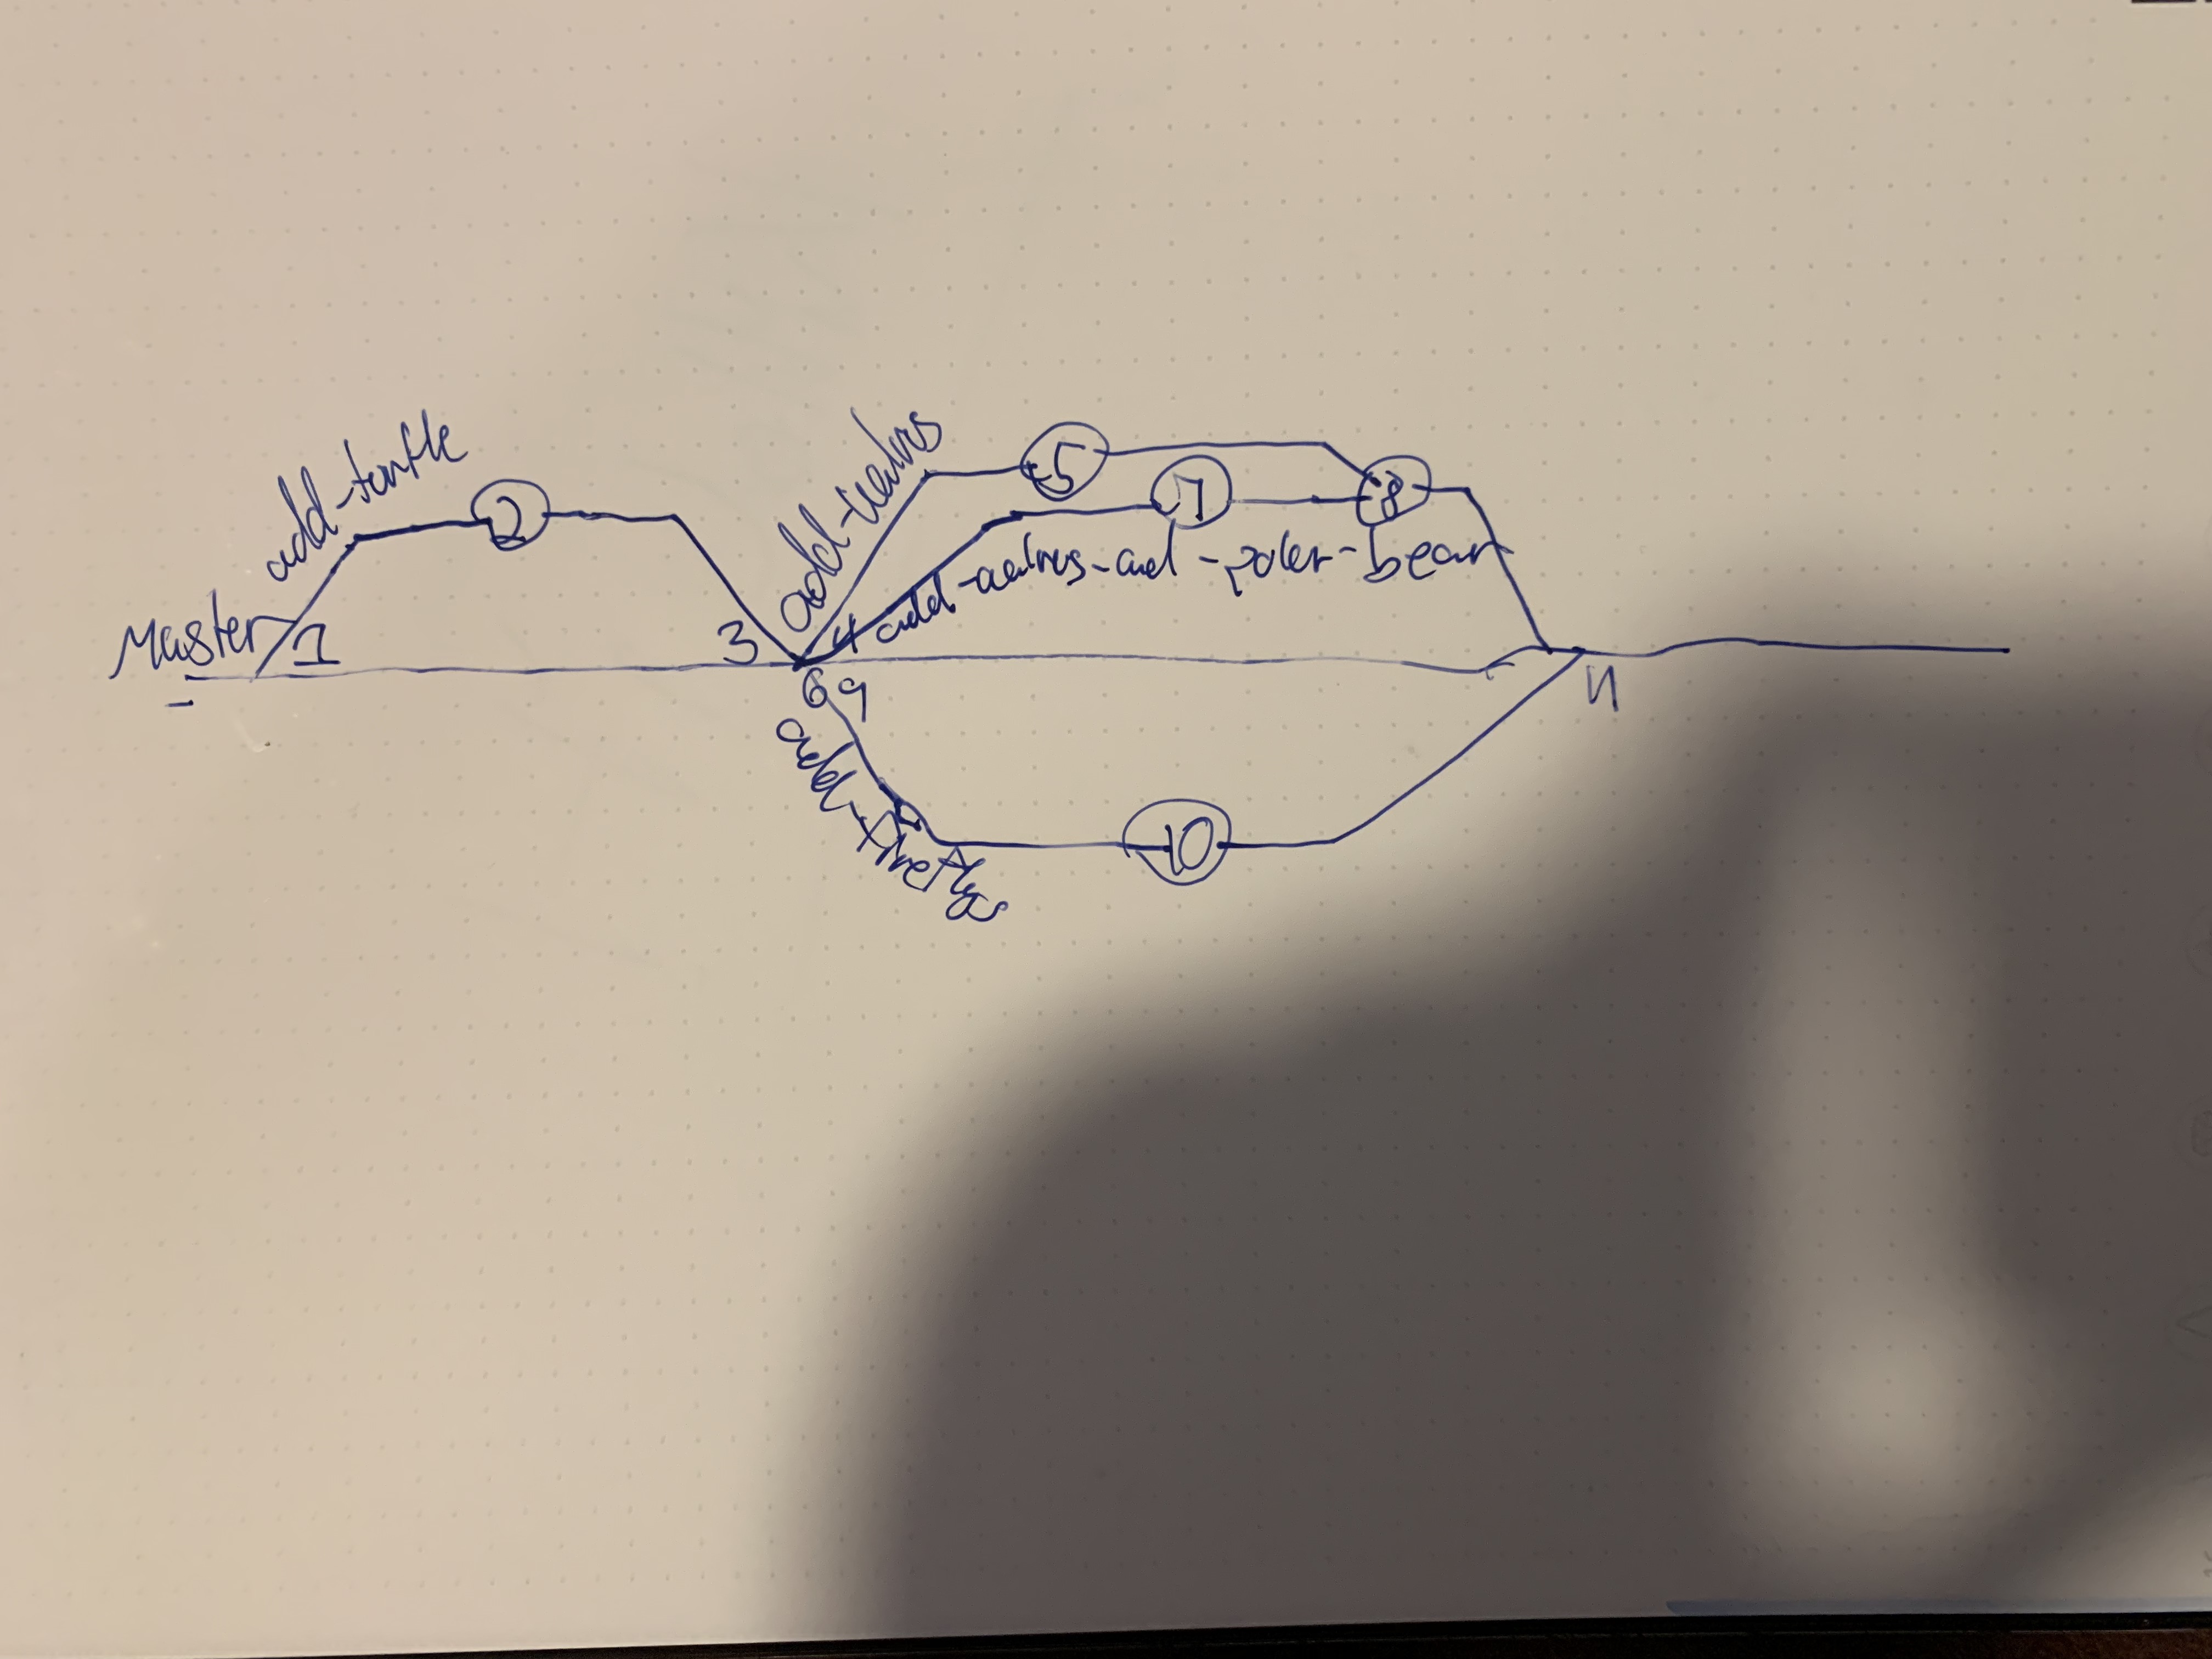 Master
1
add-turtle
2
3
add-walrus
4
add-walrus-and-polar-bear
5
6 9
7
8
10
11